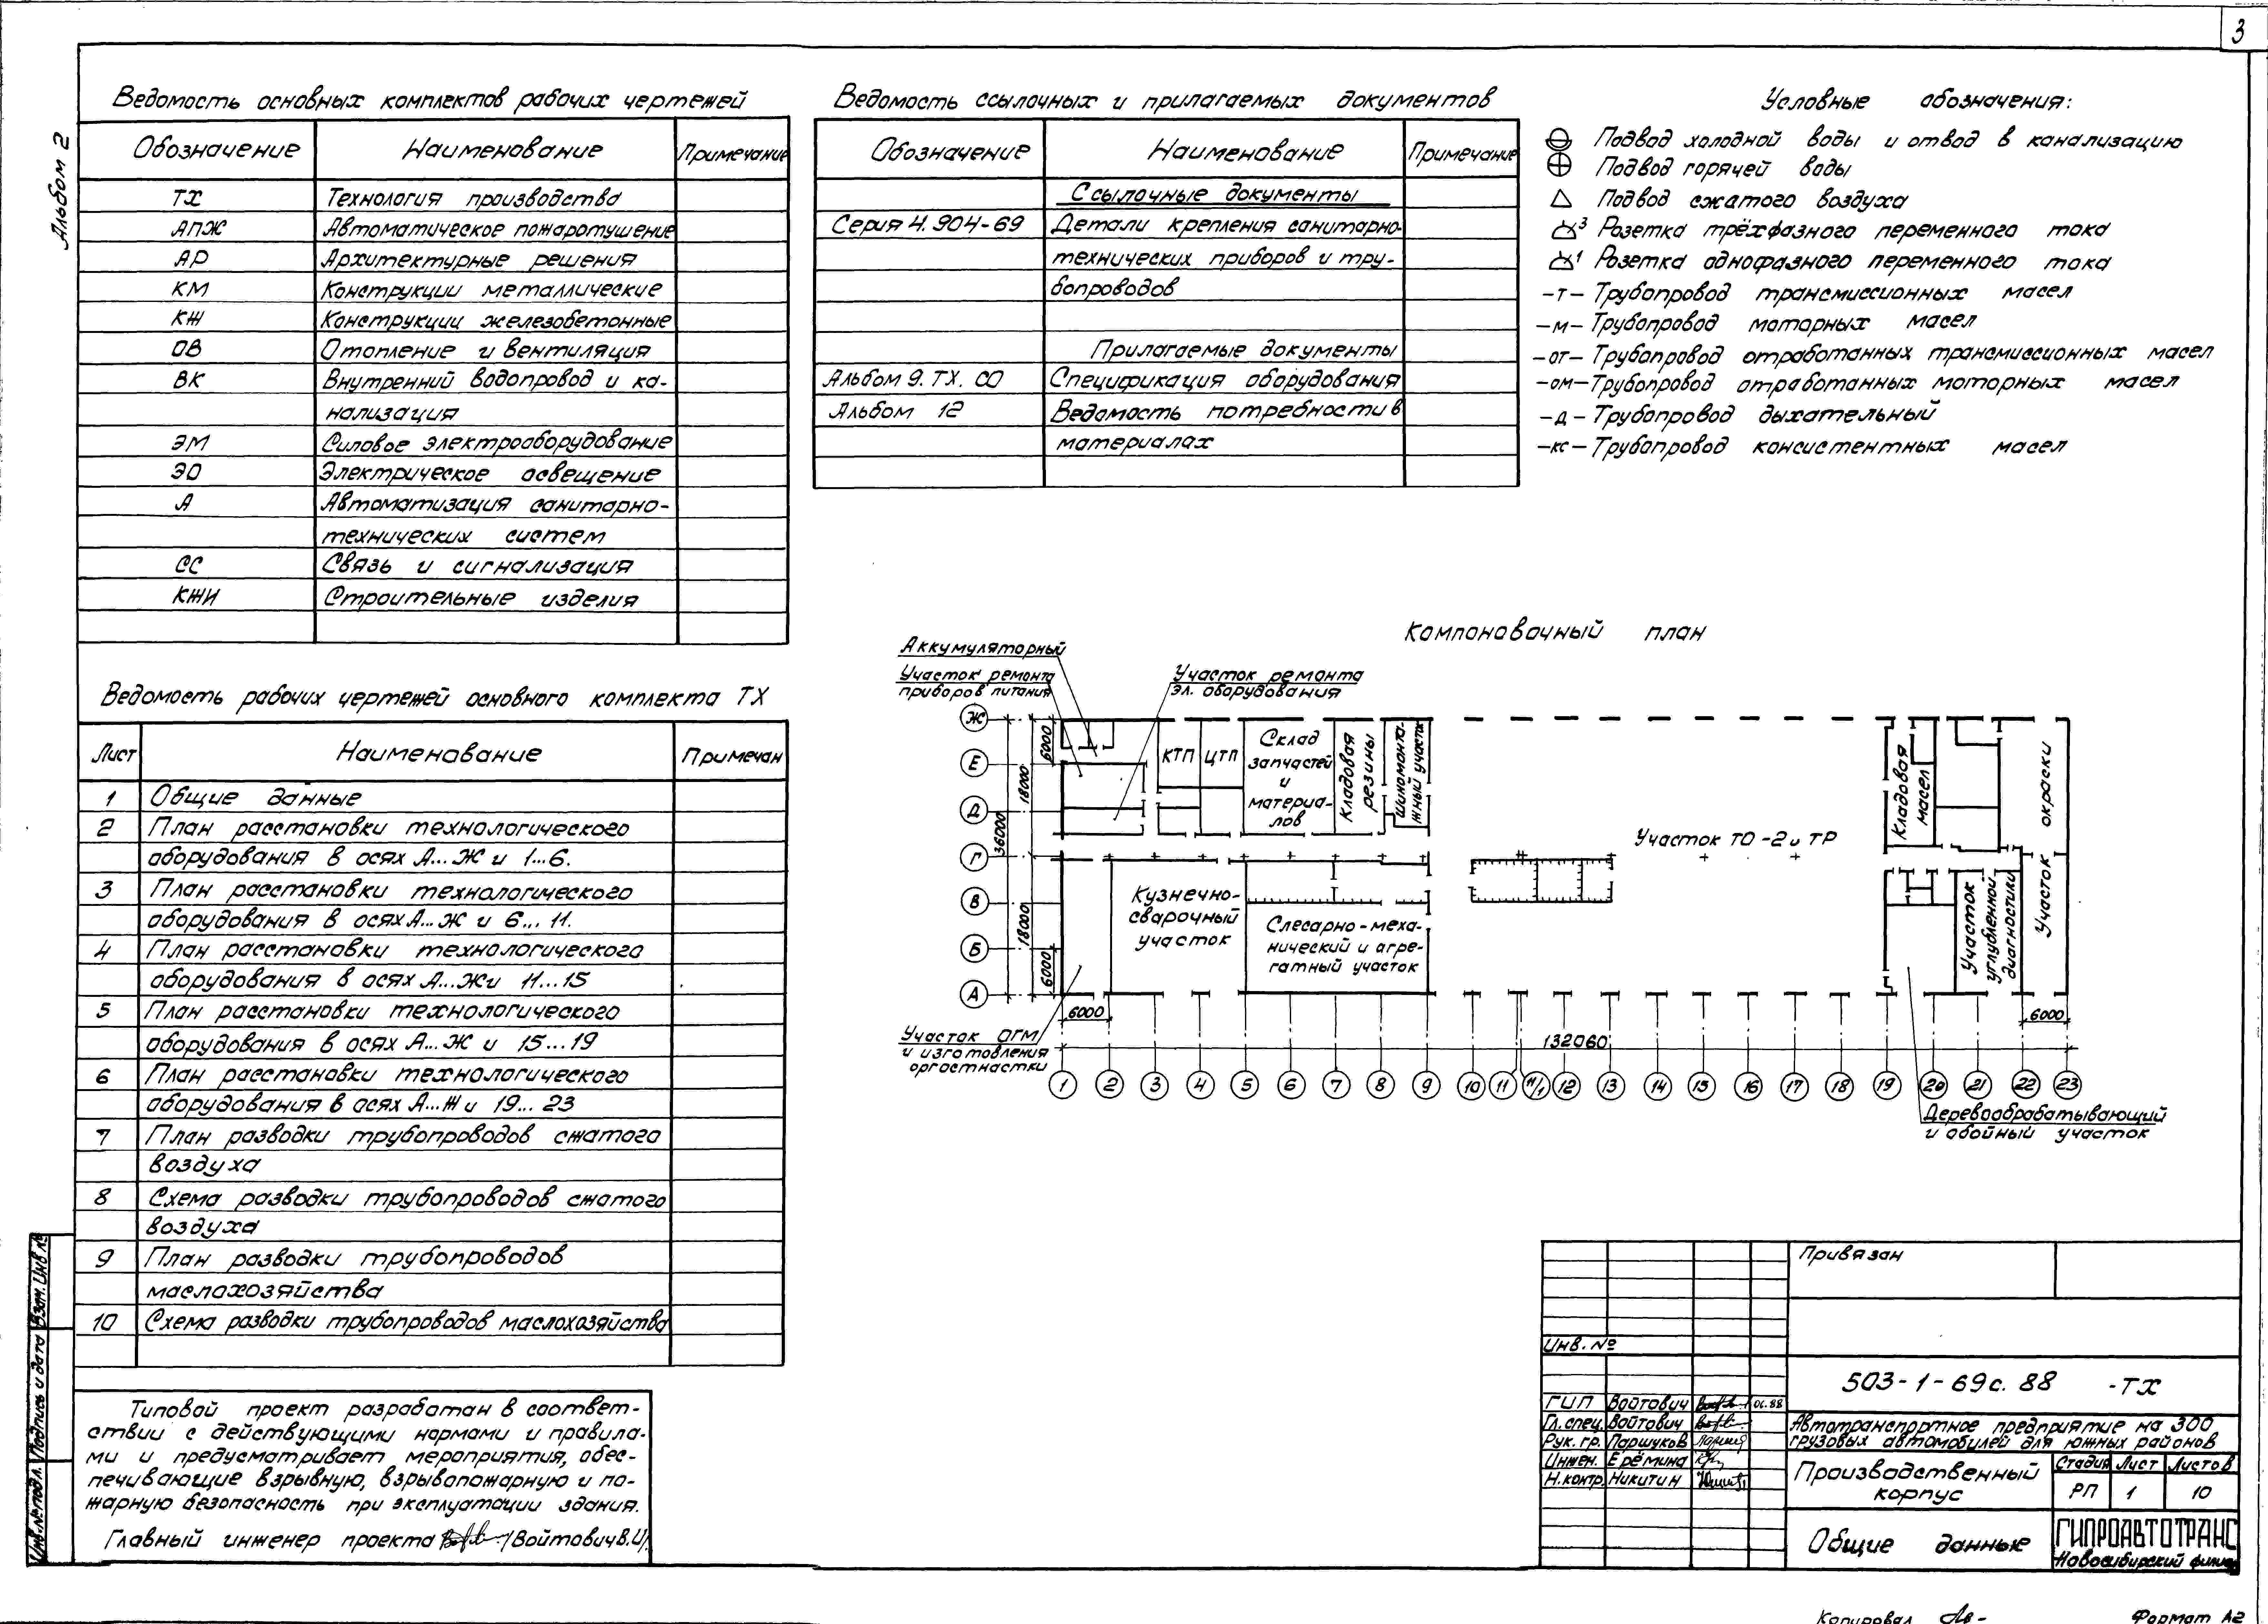 3
Альбом 2
Ведомость основных комплектов рабочих чертежей
Обозначение Наименование Примечание
ТХ Технология производства
АПЖ Автоматическое пожаротушение
АР Архитектурные решения
КМ Конструкции металлические
КЖ Конструкции железобетонные
ОВ Отопление и вентиляция
ВК Внутренний водопровод и ка-
нализация
ЭМ Силовое электрооборудование
ЭО Электрическое освещение
А Автоматизация санитарно-
технических систем
СС Связь и сигнализация
КЖИ Строительные изделия
Ведомость рабочих чертежей основного комплекта ТХ
Лист Наименование Примечан
1 Общие данные
2 План расстановки технологического
оборудования в осях А...Ж и 1...6.
3 План расстановки технологического
оборудования в осях А...Ж и 6...11.
4 План расстановки технологического
оборудования в осях А...Ж и 11...15
5 План расстановки технологического
оборудования в осях А...Ж и 15...19
6 План расстановки технологического
оборудования в осях А...Ж и 19...23
7 План разводки трубопроводов сжатого
воздуха
8 Схема разводки трубопроводов сжатого
воздуха
9 План разводки трубопроводов
маслохозяйства
10 Схема разводки трубопроводов маслохозяйства
Типовой проект разработан в соответ-
ствии с действующими нормами и правила-
ми и предусматривает мероприятия, обес-
печивающие взрывную, взрывопожарную и по-
жарную безопасность при эксплуатации здания.
Главный инженер проекта /Войтович В.И/.
Инв.№ подл. Подпись и дата Взам. Инв №
Ведомость ссылочных и прилагаемых документов
Обозначение Наименование Примечание
Ссылочные документы
Серия 4.904-69 Детали крепления санитарно-
технических приборов и тру-
бопроводов
Прилагаемые документы
Альбом 9. ТХ. СО Спецификация оборудования
Альбом 12 Ведомость потребности в
материалах
Условные обозначения:
Подвод холодной воды и отвод в канализацию
Подвод горячей воды
Подвод сжатого воздуха
3 Розетка трёхфазного переменного тока
1 Розетка однофазного переменного тока
-т- Трубопровод трансмиссионных масел
-м- Трубопровод моторных масел
-от- Трубопровод отработанных трансмиссионных масел
-ом- Трубопровод отработанных моторных масел
-д- Трубопровод дыхательный
-кс- Трубопровод консистентных масел
Компоновочный план
Аккумуляторный
Участок ремонта
приборов питания
Участок ремонта
эл. оборудования
Ж
Е
Д
Г
В
Б
А
6000
18000
36000
18000
6000
КТП
ЦТП
Склад
запчастей
и
материа-
лов
Кладовая
резины
Шиномонта-
жный участок
Участок ТО-2 и ТР
Кладовая
масел
Участок окраски
Кузнечно-
сварочный
участок
Слесарно-меха-
нический и агре-
гатный участок
Участок
углубленной
диагностики
6000
6000
132060
Участок ОГМ
и изготовления
оргостнастки
1 2 3 4 5 6 7 8 9 10 11 11/1 12 13 14 15 16 17 18 19 20 21 22 23
Деревообрабатывающий
и обойный участок
Привязан
Инв. №
503-1-69с. 88 -ТХ
ГИП Войтович 06.88
Гл.спец. Войтович
Рук. гр. Паршуков
Инжен. Ерёмина
Н.контр. Никитин
Автотранспортное предприятие на 300
грузовых автомобилей для южных районов
Производственный
корпус
Стадия Лист Листов
РП 1 10
Общие данные
ГИПРОАВТОТРАНС
Новосибирский филиал
Копировал
Формат А2